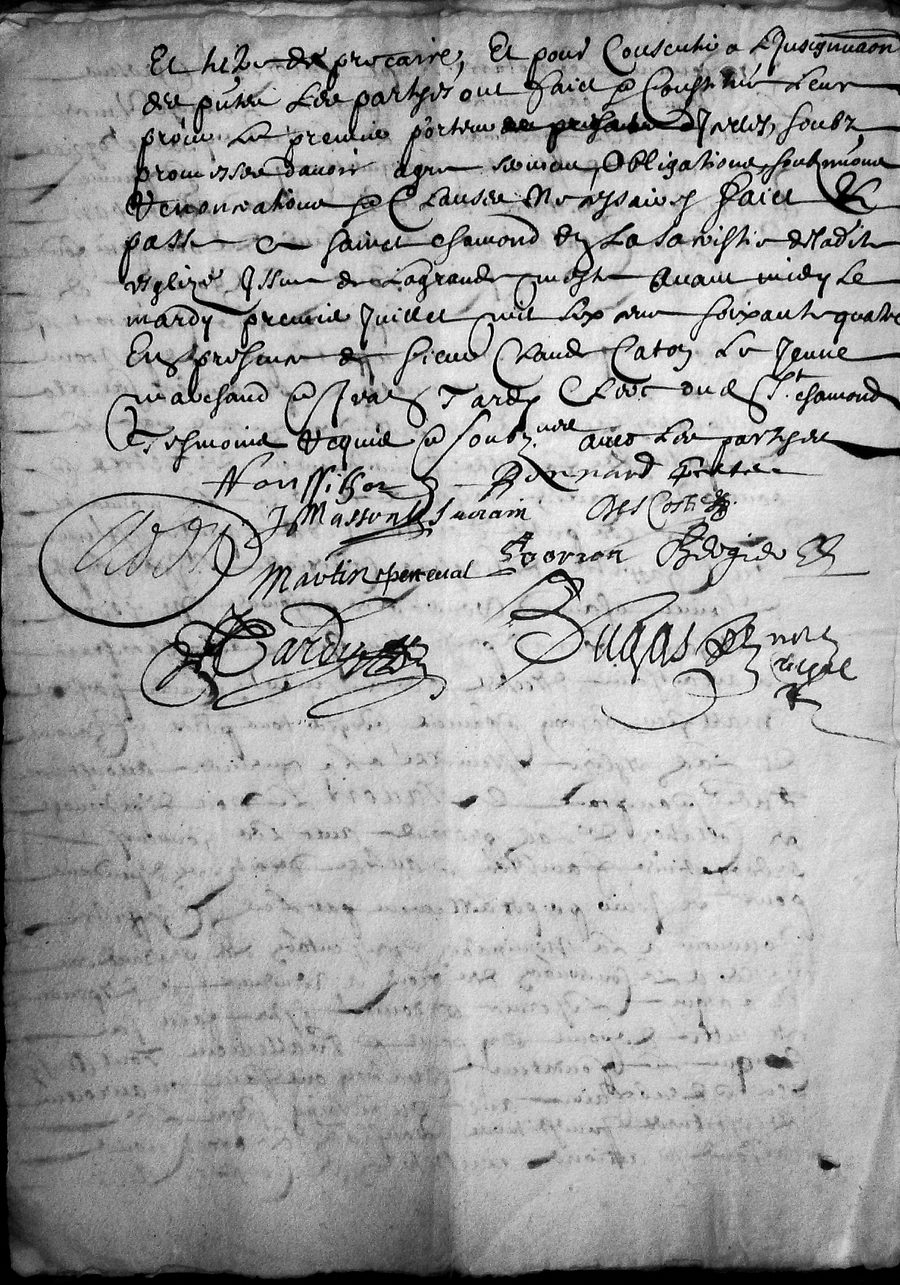 Et tiltre de precaire, Et pour Consentir a L'Insignuaon
des pntes Les partyes ont faict & Constitué Leur
procur Le premier porteur d'Icelles, soubz
promesses davoir agre Obligations soubmions
Renonciations & Clauses Necessaires faict &
passé a sainct chamond en La sacristie de ladite
esglize Issue de La grande messe avant midy Le
mardy premier Juillet mil six cens soixante quatre
En presence de sieur Claude Caton Le Jeune
marchand & Jean Tardy Clerc dud St chamond
Tesmoins Requis & soubznez avec Les partyes
Bonnard
J Masson DesCostes
Martin perceval Terrion
Tardy
Dugas nore
royal